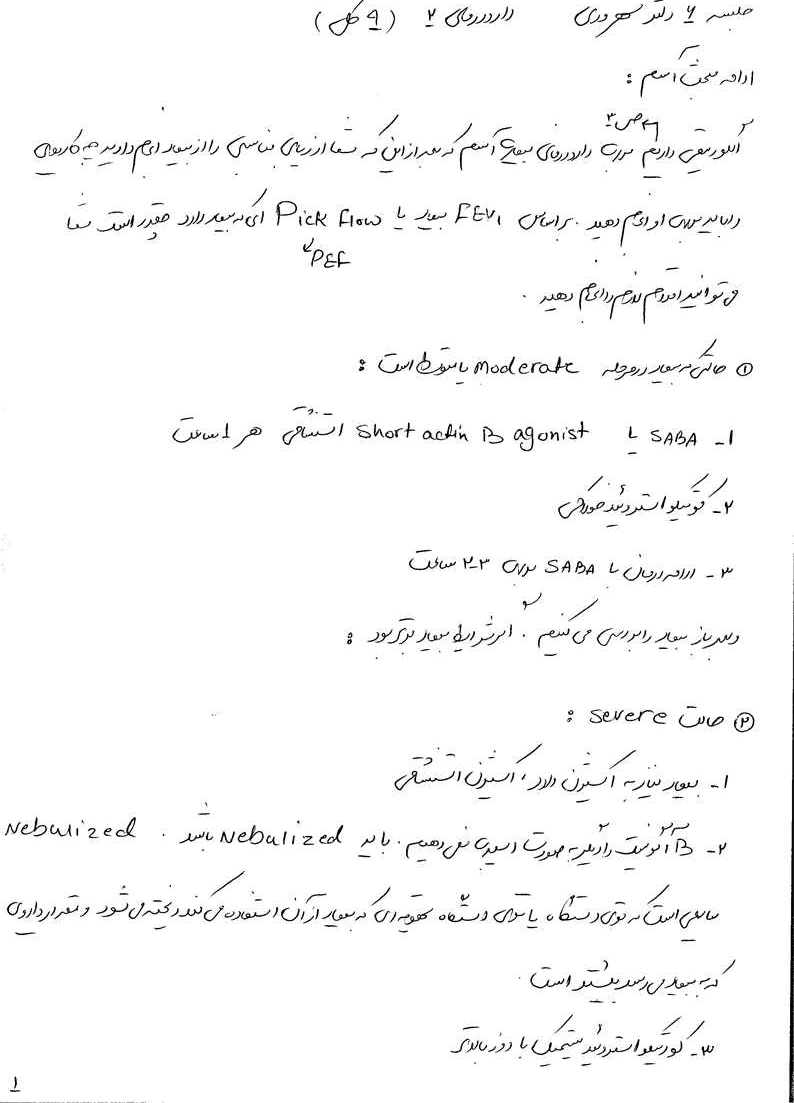 جلسه ۶ دکتر سهروردی دارودرمانی ۲ (۹ کل)
ادامه مبحث آسم :
۲ص۳
آلگوریتمی داریم بابت دارودرمانی بیماری آسم که بعد از این که شما ارزیابی مناسبی را از بیمار انجام دادید چه کارهای
را باید برای او انجام دهید . براساس FEV1 بیمار یا Pick flow ای که بیمار دارد چقدر است شما
PEF
می توانید اقدام لازم را انجام دهید .
① حالتی که بیمار در مرحله moderate یا متوسط است :
۱- SABA یا Short actin B agonist استنشاقی هر ۱ ساعت
۲- کورتیکواستروئید خوراکی
۳- ادامه درمان با SABA برای ۳-۲ ساعت
و بعد باز بیمار را بررسی می کنیم . اگر شرایط بیمار بدتر بود :
② حالت severe :
۱- بیمار نیاز به اکسیژن دارد ، اکسیژن استنشاقی
۲- B آگونیست را دیگر به صورت اسپری نمی دهیم . باید Nebulized باشد . Nebulized
مایعی است که توی دستگاه یا توی دستگاه تهویه ای که بیمار از آن استفاده می کند ریخته می شود و مقدار داروی
که به بیمار می رسد بیشتر است .
۳- کورتیکواستروئید سیستمیک با دوز بالاتر
۱